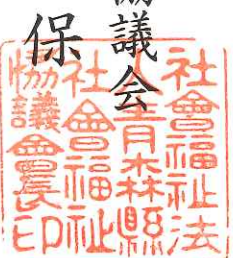 議会
保
社會福祉法
人青森縣
社會福祉
協議會長印